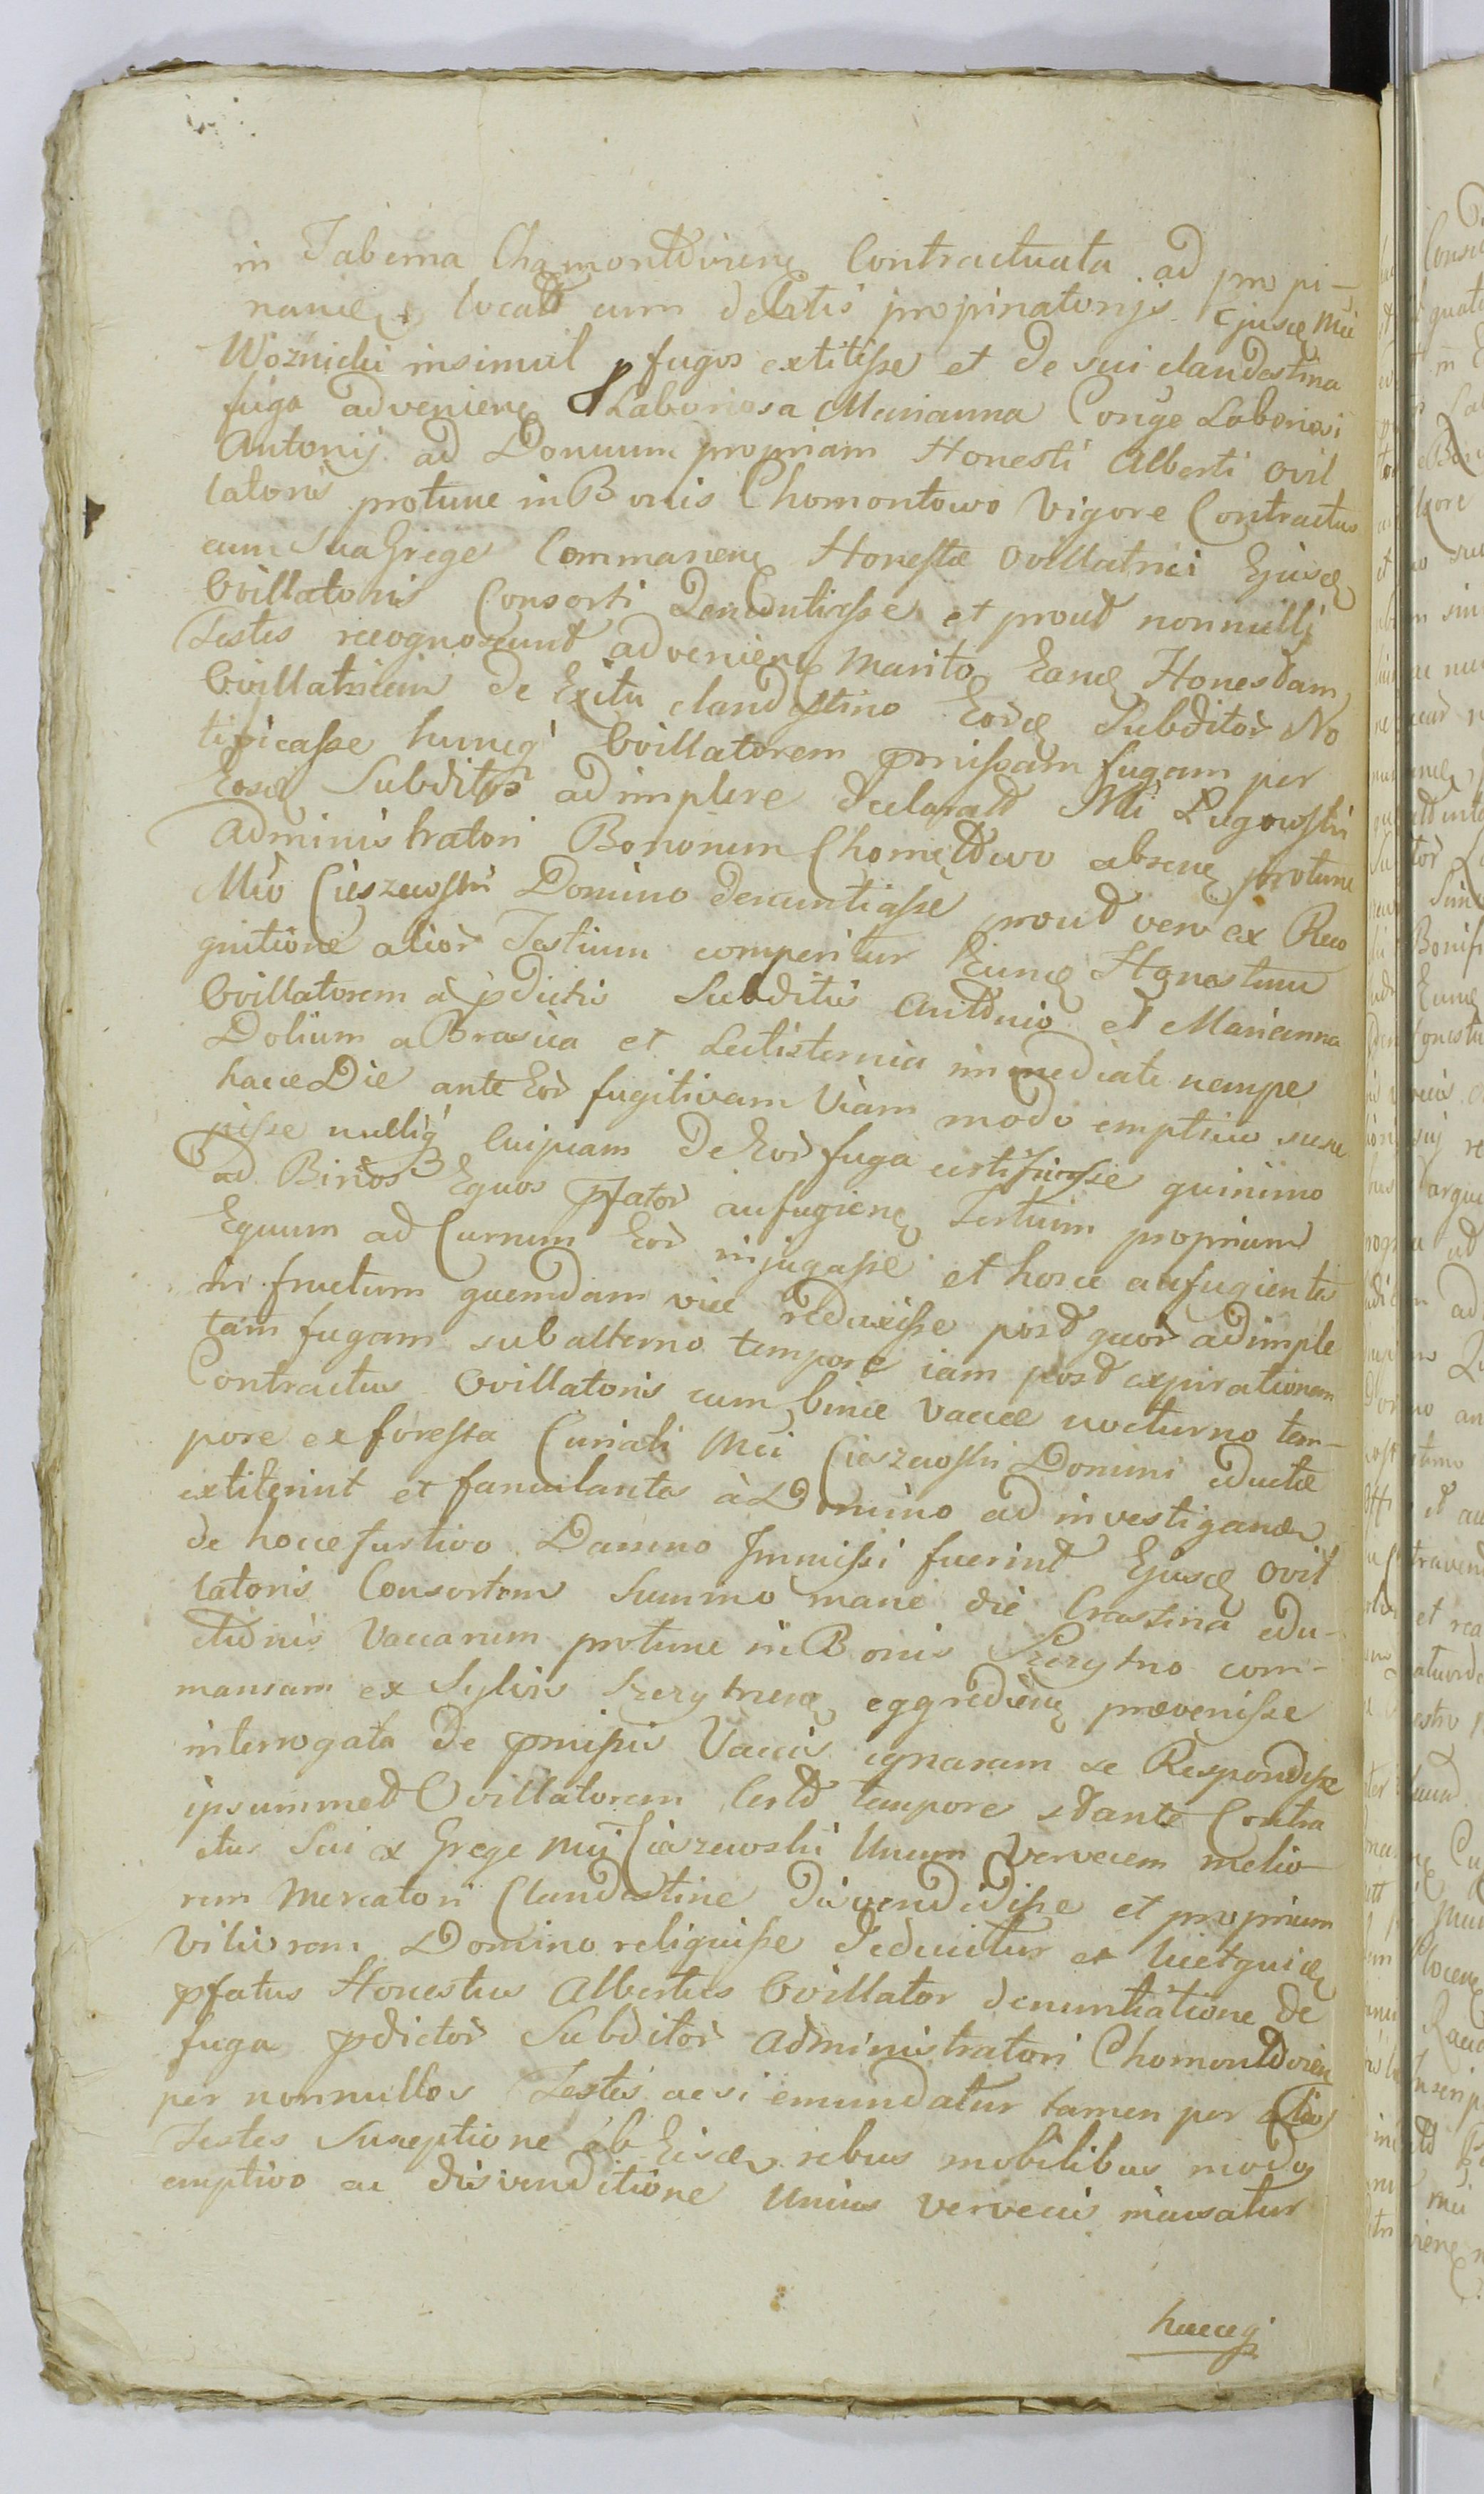 in Taberna Chomontoviens Contractuata ad propi-
nand locat cum debitis propinatorijs Ejusd Mci
Woznicki insimul pfugos extitisse et de sui clandestina
fuga adveniens Laboriosa Marianna Conge Laboriosi
Antonij ad Domum propriam Honesti Alberti Ovil
latoris protunc in Bonis Chomontowo Vigore Contractus
cum sua Grege Commanens Honestæ Ovillatrici Ejusd
Ovillatoris Consorti Denuntiasse et prout nonnulli
Testes recognoscunt adveniens Marito Eand Honestam
Ovillatricem de Exitu clandestino Eord Subditor No
tificasse huncq Ovillatorem pmissam fugam per
Eosd Subditos adimplere declarat Mci Lugowski
Administratori Bonorum Chomontowo absens protunc
Mco Cieszewski Domino denuntiasse prout vero ex Reco
gnitione alior Testium comperitur Eund Honestum
Ovillatorem à pdictis Subditis Antonio et Marianna
Dolium a Brasica et Lectisternia immediate nempe
hacce Die ante Eor fugitivam Viam modo emptivo susce
pisse nulliq cuipiam de Eor fuga certificasse quinimo
ad Binos Equos pfator aufugiens Tertium proprium
Equum ad Currum Eor injugasse et hosce aufugientes
in fructum quemdam vice reduxisse post quor adimple
tam fugam subalterno tempore iam post expirationem
Contractus Ovillatoris cum binæ Vaccæ nocturno tem-
pore ex foresta Curiali Mci Cieszewski Domini eductæ
extiterint et famulantes à Domino ad investigand
de hocce furtivo Damno Immissi fuerint Ejusd Ovil
latoris Consortem Summo mane die Crastina edu-
ctionis Vaccarum protunc in Bonis Szczytno com-
mansam ex Sylvis Szczytnens eggrediens prævenisse
interrogata de pmissis Vaccis ignaram se Respondisse
ipsummet Ovillatorem Certo tempore stante Contra
ctus Sui ex Grege Mci Cieszewski Unum Vervecem melio-
rem Mercatori Clandestine disvendidisse et proprium
viliorem Domino reliquisse deducitur et licet quid
pfatus Honestus Albertus Ovillator denuntiatione de
fuga pdictor Subditor Administratori Chomontovien
per nonnullos Testes acsi emundatur tamen per alios
Testes Susceptione ab Eisd rebus mobilibus modo
emptivo ac disvenditione Unius vervecis incusatur
hæcceq